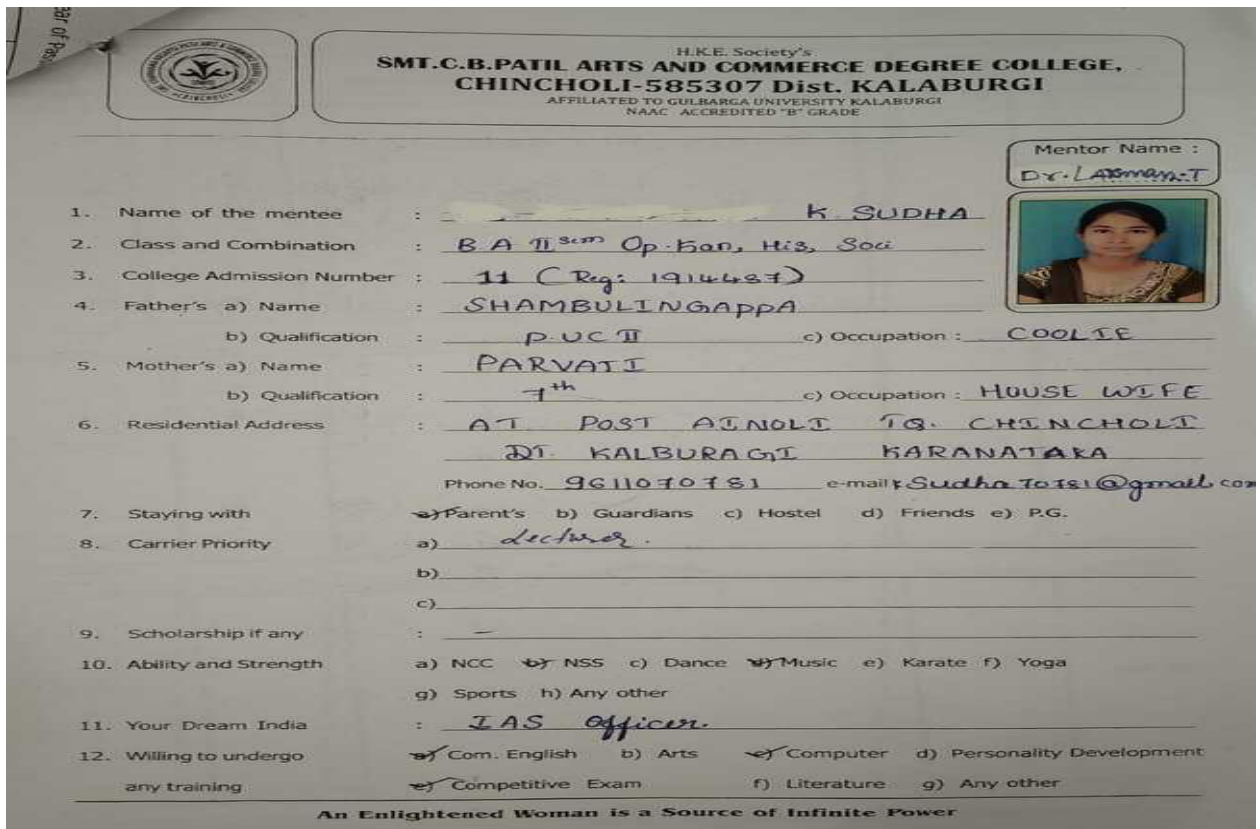 ear of Pas
H.K.E. Society's
SMT.C.B.PATIL ARTS AND COMMERCE DEGREE COLLEGE,
CHINCHOLI-585307 Dist. KALABURGI
AFFILIATED TO GULBARGA UNIVERSITY KALABURGI
NAAC ACCREDITED "B" GRADE
Mentor Name :
Dr. LAXman.T
1. Name of the mentee : K. SUDHA
2. Class and Combination : B A II sem Op. Kan, His, Soci
3. College Admission Number : 11 (Reg: 1914487)
4. Father's a) Name : SHAMBULINGAPPA
b) Qualification : P.UC II c) Occupation : COOLIE
5. Mother's a) Name : PARVATI
b) Qualification : 7th c) Occupation : HOUSE WIFE
6. Residential Address : AT POST AINOLI TQ. CHINCHOLI
DT. KALBURAGI KARANATAKA
Phone No. 9611070781 e-mail: kSudha70781@gmail.com
7. Staying with a) Parent's b) Guardians c) Hostel d) Friends e) P.G.
8. Carrier Priority a) Lecturer.
b)
c)
9. Scholarship if any : —
10. Ability and Strength a) NCC b) NSS c) Dance d) Music e) Karate f) Yoga
g) Sports h) Any other
11. Your Dream India : IAS Officer.
12. Willing to undergo a) Com. English b) Arts c) Computer d) Personality Development
any training e) Competitive Exam f) Literature g) Any other
An Enlightened Woman is a Source of Infinite Power